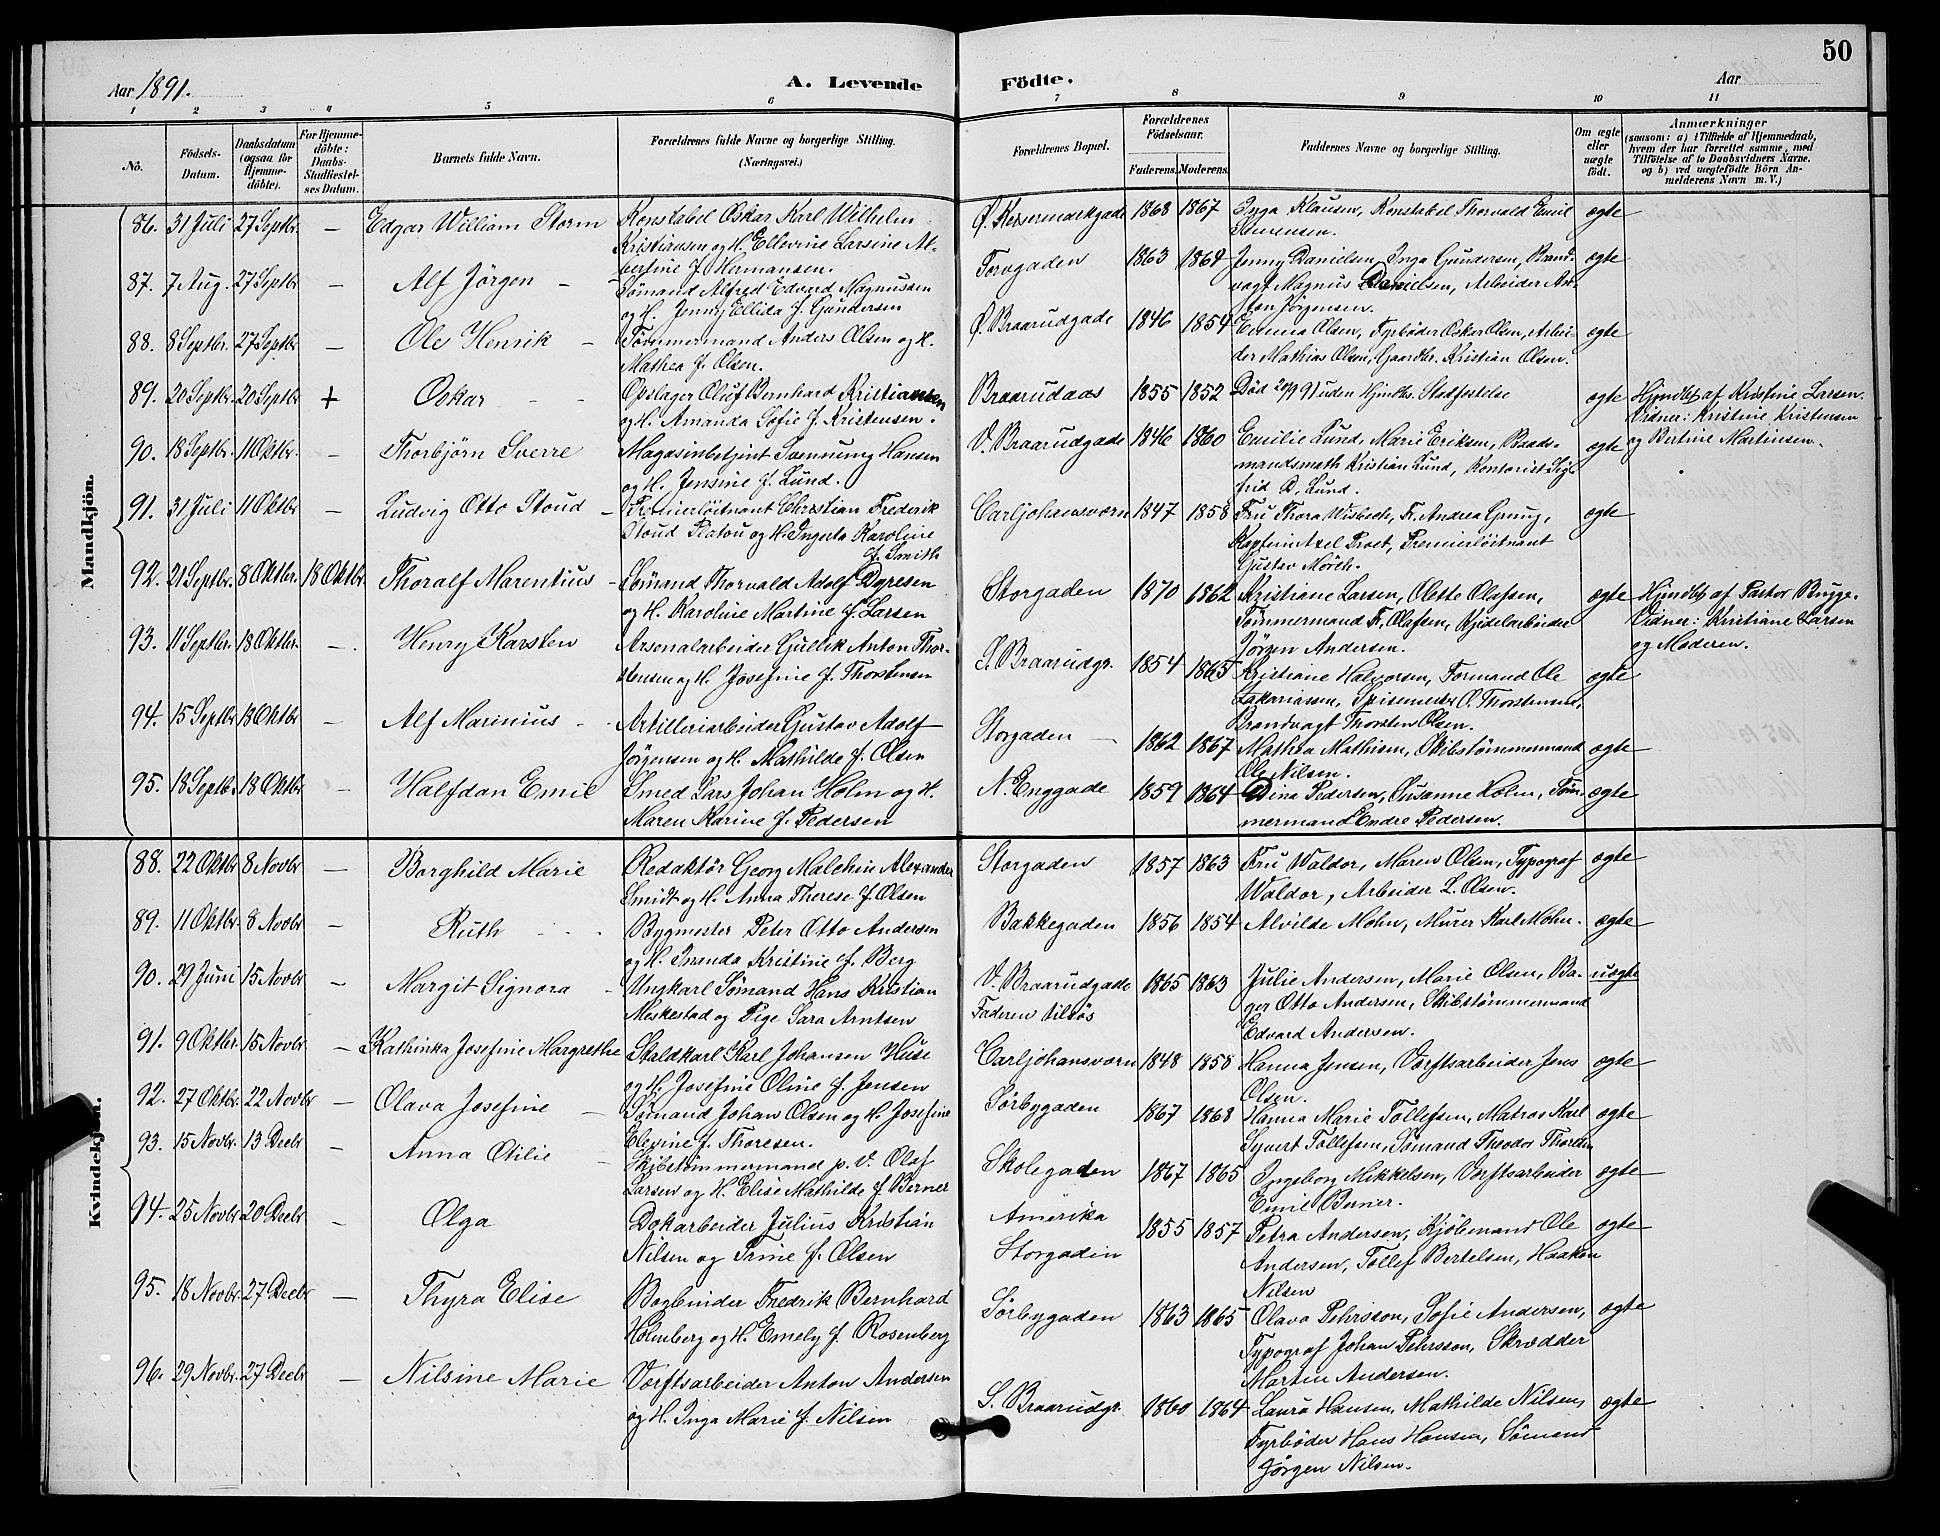 50
Aar 1891.
A. Levende
Födte.
Aar
1 2 3 4 5 6 7 8 9 10 11
No.
Födsels-Datum.
Daabsdatum (ogsaa for Hjemme-döbte).
For Hjemme-döbte: Daabs-Stadfæstel-ses Datum.
Barnets fulde Navn.
Forældrenes fulde Navne og borgerlige Stilling.
(Næringsvei.)
Forældrenes Bopæl.
Forældrenes Födselsaar.
Faderens. Moderens.
Faddernes Navne og borgerlige Stilling.
Om ægte eller uægte födt.
Anmærkninger
(saasom: a) i Tilfælde af Hjemmedaab, hvem der har forrettet samme, med Tilföielse af to Daabsvidners Navne. og b) ved uægtefödte Börn An-melderens Navn m. V.)
Mandkjön.
86. 31 Juli 27 Septbr. – Edgar William Storm
Konstabel Oskar Karl Wilhelm
Kristiansen og H. Ellevine Larsine Al-
bertine f. Hermansen.
Ø. Keisermarkgade 1868 1867
Inga Klausen, Konstabel Thorvald Emil
Simensen.
ægte
87. 7 Aug. 27 Septbr – Alf Jörgen –
Sömand Alfred Edvard Magnussen
og H. Jenny Ellida f. Gundersen
Torvgaden 1863 1864
Jenny Danielsen, Inga Gundersen, Brand-
vagt Magnus Danielsen, Arbeider An-
ton Jörgensen.
ægte
88. 8 Septbr. 27 Septbr – Ole Henrik –
Tömmermand Anders Olsen og H.
Mathea f. Olsen.
Ø. Braarudgade 1846 1854
Emma Olsen, Fyrböder Oskar Olsen, Arbei-
der Mathias Olsen, Gaardbr. Kristian Olsen.
ægte
89. 20 Septbr 20 Septbr + Oskar - -
Opslager Oluf Bernhard Kristiansen
og H. Amanda Sofie f. Kristensen.
Braarudaas 1855 1852
Död 20/9 91 uden Hjmdbs. Stadfæstelse
ægte
Hjmdbt af Kristine Larsen.
Vidner: Kristine Kristensen
og Bertine Martinsen.
90. 18 Septbr. 11 Oktbr. – Thorbjörn Sverre
Magasinbetjent Svennung Hansen
og H. Jensine f. Lund.
V. Braarudgade 1846 1860
Emilie Lund, Marie Eriksen, Baads-
mandsmath Kristian Lund, Kontorist Sig-
frid D. Lund.
ægte
91. 31 Juli 11 Oktbr – Ludvig Otto Stoud –
Premierlöitnant Christian Frederik
Stoud Platou og H. Ingerta Karoline
f. Smith
Carljohansværn 1847 1858
Fru Thora Wisbech, Fr. Andrea Grung,
Kaptein Axel Proet, Premierlöitnant
Gustav Mörch.
ægte
92. 21 Septbr. 8 Oktbr. 18 Oktbr. Thoralf Marentius –
Sömand Thorvald Adolf Dyresen
og H. Karoline Martine f. Larsen
Storgaden 1870 1862
Kristiane Larsen, Olette Olafsen,
Tömmermand Fr. Olafsen, Kjedelarbeider
Jörgen Andersen.
ægte
Hjmdbt af Pastor Bugge.
Vidner: Kristiane Larsen
og Moderen.
93. 11 Septbr. 18 Oktbr. – Henry Karsten
Arsenalarbeider Gullik Anton Thor-
stensen og H. Josefine f. Thorstensen
S. Braarudgt. 1854 1865
Kristiane Halvorsen, Formand Ole
Zakariassen, Spisemester O. Thorstensen,
Brandvagt Thorsten Olsen.
ægte
94. 15 Septbr 18 Oktbr – Alf Marinius - -
Artilleriarbeider Gustav Adolf
Jörgensen og H. Mathilde f. Olsen
Storgaden – 1862 1867
Mathea Mathisen, Skibstömmermand
Ole Nilsen.
ægte
95. 18 Septbr. 18 Oktbr – Halfdan Emil
Smed Lars Johan Holm og H.
Maren Karine f. Pedersen
N. Enggade 1859 1864
Dina Pedersen, Susanne Holm, Töm-
mermand Endre Pedersen.
ægte
Kvindekjön.
88. 22 Oktbr 8 Novbr – Borghild Marie
Redaktör Georg Malchin Alexander
Smidt og H. Anna Therese f. Olsen
Storgaden 1857 1863
Fru Waldor, Maren Olsen, Typograf
Waldor, Arbeider L. Olsen.
ægte
89. 11 Oktbr. 8 Novbr – Ruth - - -
Bygmester Peter Otto Andersen
og H. Inanda Kristine f. Berg
Bakkegaden 1856 1854
Alvilde Mohn, Murer Karl Mohn.
ægte
90. 29 Juni 15 Novbr. – Margit Signora –
Ungkarl Sömand Hans Kristian
Meskestad og Pige Sara Arntsen
V. Braarudgade
Faderen tilsös
1865 1863
Julie Andersen, Marie Olsen, Ba-
ger Otto Andersen, Skibstömmermand
Edvard Andersen.
uægte
91. 9 Oktbr. 15 Novbr. – Kathinka Josefine Margrethe
Staldkarl Karl Johansen Huse
og H. Josefine Oline f. Jensen
Carljohansværn 1848 1858
Hanna Jensen, Værftsarbeider Jens
Olsen.
ægte
92. 27 Oktbr. 22 Novbr – Olava Josefine –
Sömand Johan Olsen og H. Josefine
Elevine f. Thoresen.
Sörbygaden 1867 1868
Hanna Marie Tollefsen, Matros Karl
Syvert Tollefsen, Sömand Theodor Thoresen
ægte
93. 15 Novbr. 13 Decbr – Anna Otilie –
Skibstömmermand p. V. Olaf
Larsen og H. Elise Mathilde f. Berner
Skolegaden
Amerika
1867 1865
Ingeborg Mikkelsen, Værftsarbeider
Emil Berner.
ægte
94. 25 Novbr. 20 Decbr – Olga
Dokarbeider Julius Kristian
Nilsen og Trine f. Olsen
Storgaden 1855 1857
Petra Andersen, Kjöbmand Ole
Andersen, Tollef Bertelsen, Haakon
Nilsen
ægte
95. 18 Novbr. 27 Decbr – Thyra Elise
Bogbinder Fredrik Bernhard
Holmberg og H. Emely f. Rosenberg
Sörbygaden 1863 1865
Olava Pehrsson, Sofie Andersen,
Typograf Johan Pehrsson, Skrædder
Martin Andersen.
ægte
96. 29 Novbr. 27 Decbr – Nilsine Marie
Værftsarbeider Anton Andersen
og H. Inga Marie f. Nilsen
S. Braarudgt. 1860 1864
Laura Hansen, Mathilde Nilsen,
Fyrböder Hans Hansen, Sömand
Jörgen Nilsen.
ægte